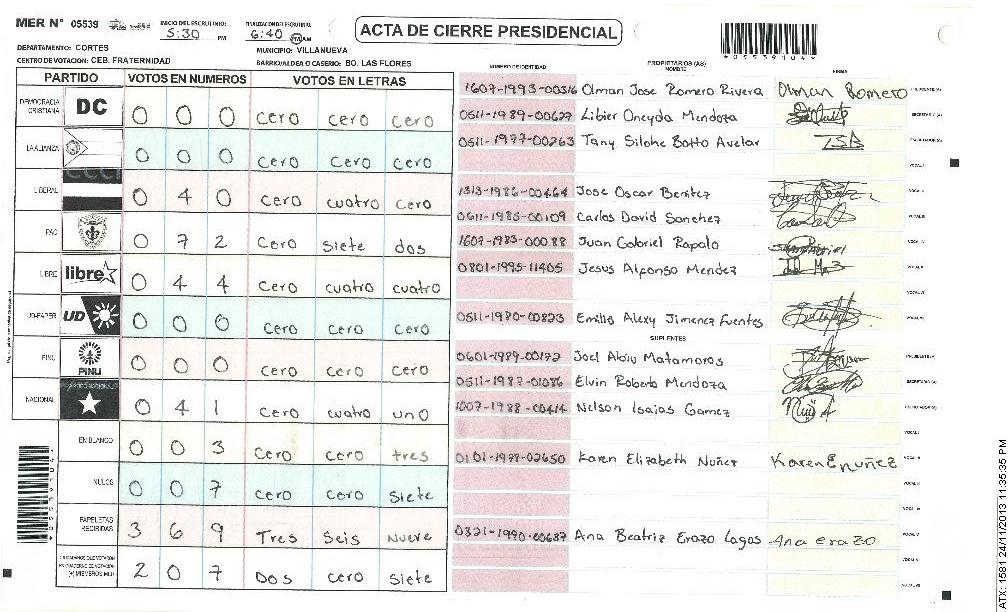 MER N° 05539
INICIO DEL ESCRUTINIO: 5:30 PM
FINALIZACION DEL ESCRUTINIO: 6:40 PM AM
ACTA DE CIERRE PRESIDENCIAL
*05539104*
DEPARTAMENTO: CORTES
MUNICIPIO: VILLANUEVA
CENTRO DE VOTACION: CEB. FRATERNIDAD
BARRIO/ALDEA O CASERIO: BO. LAS FLORES
PARTIDO VOTOS EN NUMEROS VOTOS EN LETRAS
DEMOCRACIA CRISTIANA DC 0 0 0 cero cero cero
LA ALIANZA 0 0 0 cero cero cero
LIBERAL 0 4 0 cero cuatro cero
PAC 0 7 2 cero siete dos
LIBRE libre 0 4 4 cero cuatro cuatro
UD-FAPER UD 0 0 0 cero cero cero
PINU PINU 0 0 0 cero cero cero
NACIONAL 0 4 1 cero cuatro uno
EN BLANCO 0 0 3 cero cero tres
NULOS 0 0 7 cero cero siete
PAPELETAS RECIBIDAS 3 6 9 Tres Seis Nueve
CIUDADANOS QUE VOTARON EN CUADERNO DE VOTACION (+) MIEMBROS MER 2 0 7 Dos cero siete
NUMERO DE IDENTIDAD PROPIETARIOS (AS) NOMBRE FIRMA
1607-1993-00316 Olman Jose Romero Rivera Olman Romero
0511-1989-00627 Libier Oneyda Mendoza
0511-1977-00263 Tany Silohe Botto Avelar
1313-1986-00464 Jose Oscar Benitez
0611-1985-00109 Carlos David Sanchez
1607-1983-00088 Juan Gabriel Rapalo
0801-1995-11405 Jesus Alfonso Mendez
0511-1980-00823 Emilis Alexy Jimenez Fuentes
SUPLENTES
0601-1989-00172 Joel Abiu Matamoros
0511-1987-01086 Elvin Roberto Mendoza
1007-1988-00414 Nelson Isaias Gomez
0101-1979-02650 Karen Elizabeth Nuñez Karen E nuñez
0321-1990-00687 Ana Beatriz Erazo Lagos Ana erazo
ATX: 1581 24/11/2013 11:35:35 PM